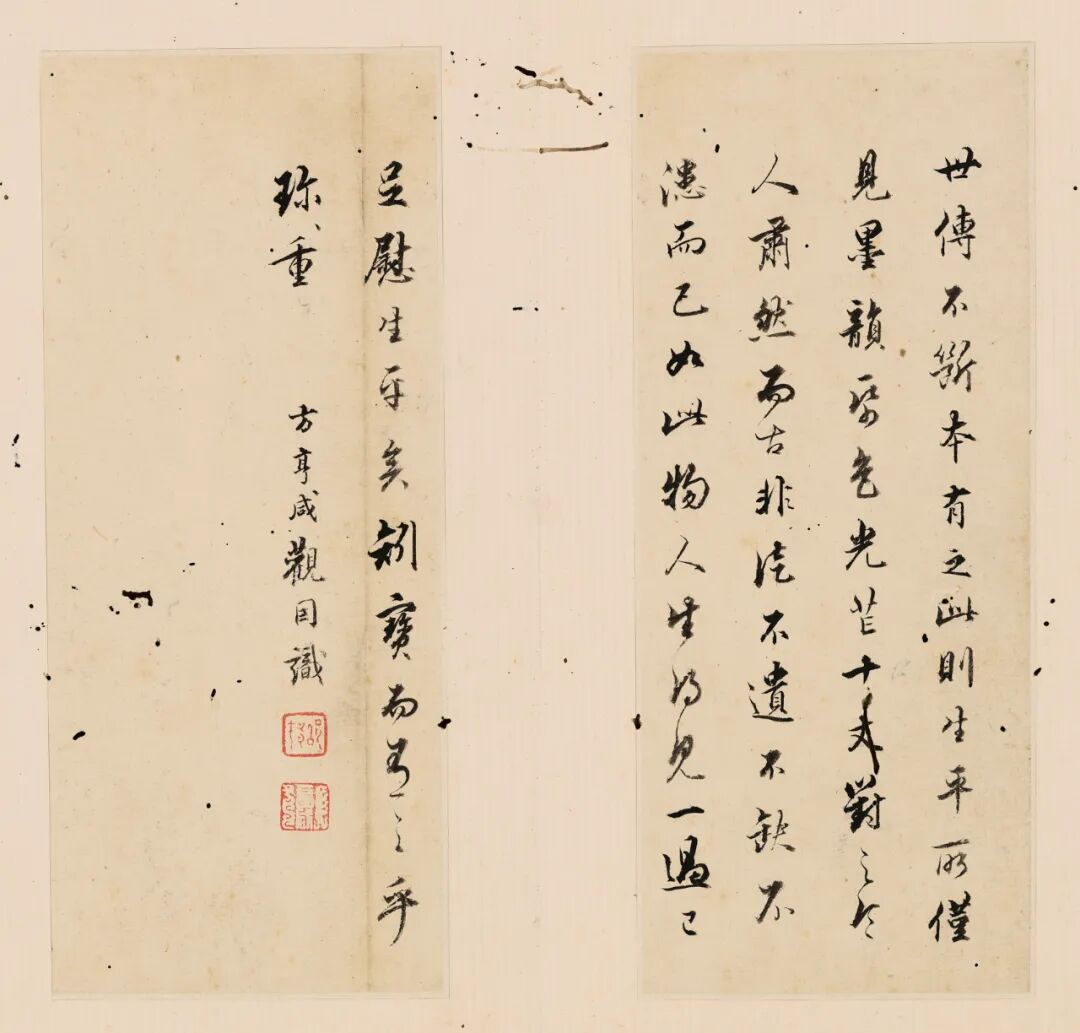 世傳不斷本有之此則生平所僅
見墨韻紙色光芒十丈對之令
人肅然而古非徒不遺不缺不
漶而已如此物人生得見一過已
足慰生平矣矧寶而有之乎
珍重
方亨咸觀因識